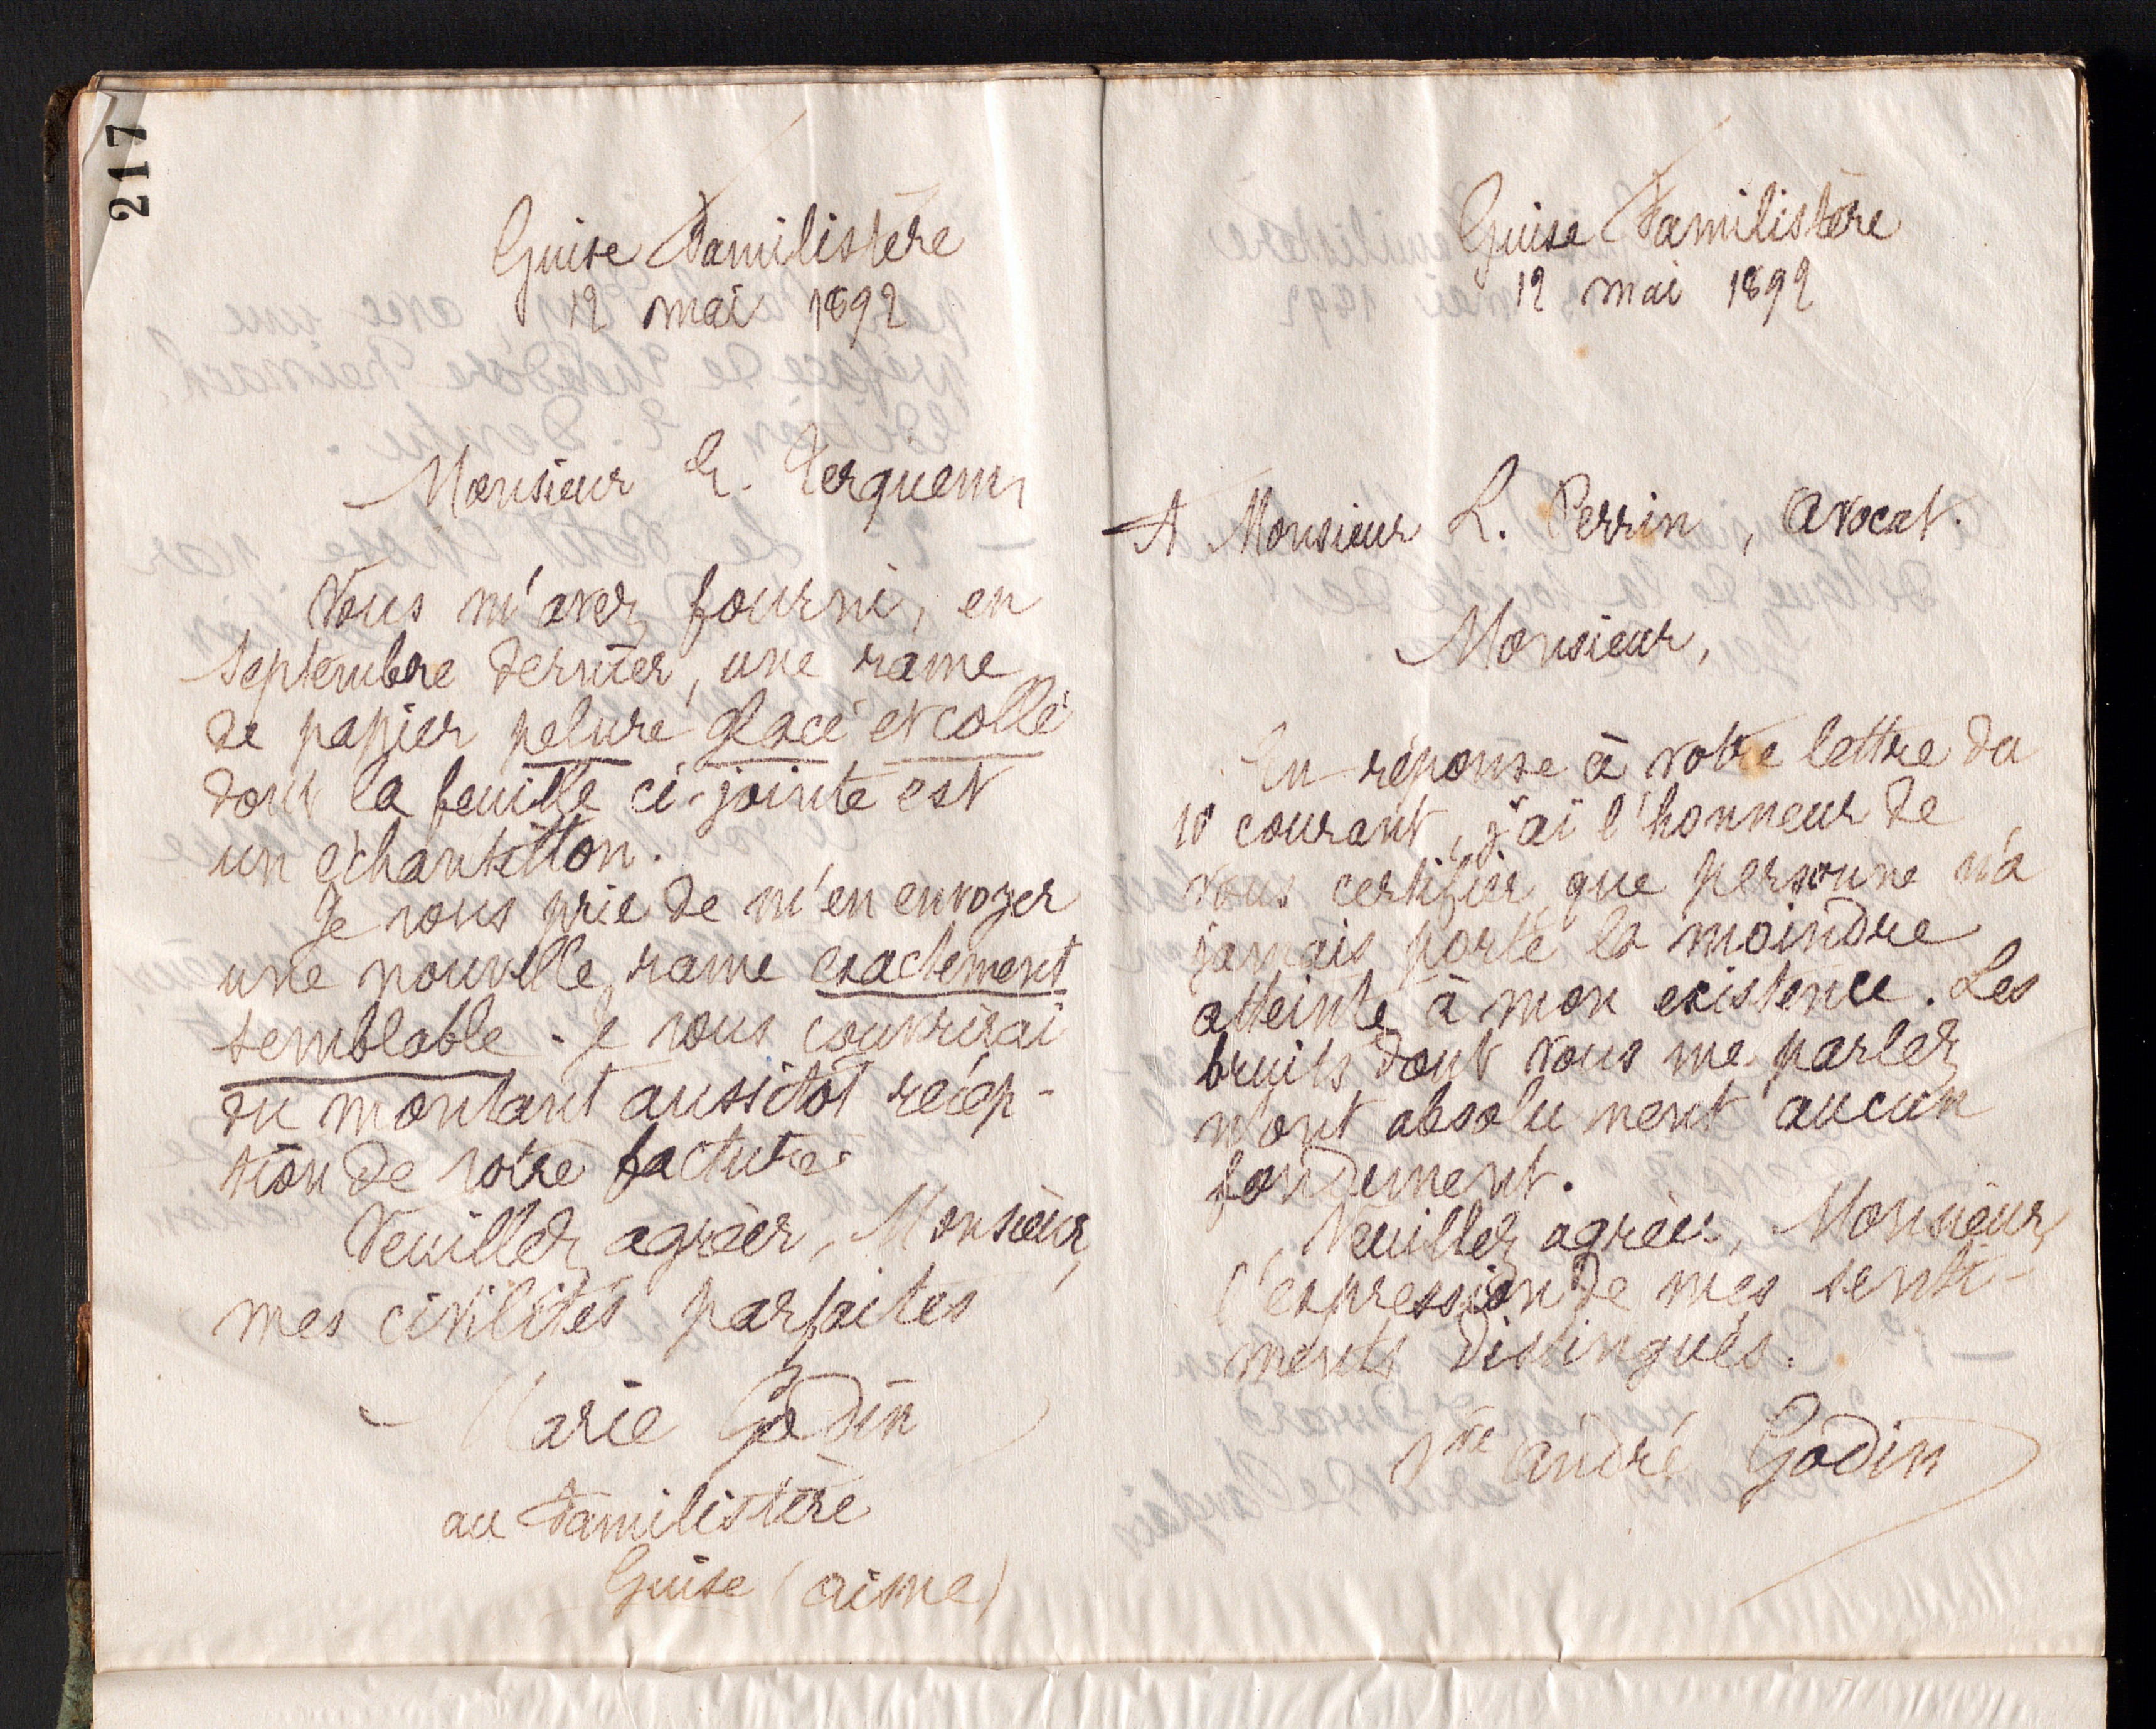 217
Guise Familistère
12 mai 1892
Monsieur E. Terquem
Vous m'avez fourni, en
septembre dernier, une rame
de papier pelure glacé et collé
dont la feuille ci-jointe est
un échantillon.
Je vous prie de m'en envoyer
une nouvelle rame exactement
semblable. Je vous couvrirai
du montant aussitôt récep-
tion de votre facture.
Veuillez agréer, Monsieur,
mes civilités parfaites
Marie Godin
au Familistère
Guise (Aisne)
Guise Familistère
12 mai 1892
A Monsieur L. Perrin, avocat.
Monsieur,
En réponse à votre lettre du
10 courant, j'ai l'honneur de
vous certifier que personne n'a
jamais porté la moindre
atteinte à mon existence. Les
bruits dont vous me parlez
n'ont absolument aucun
fondement.
Veuillez agréer, Monsieur,
l'expression de mes senti-
ments distingués.
Vve André Godin